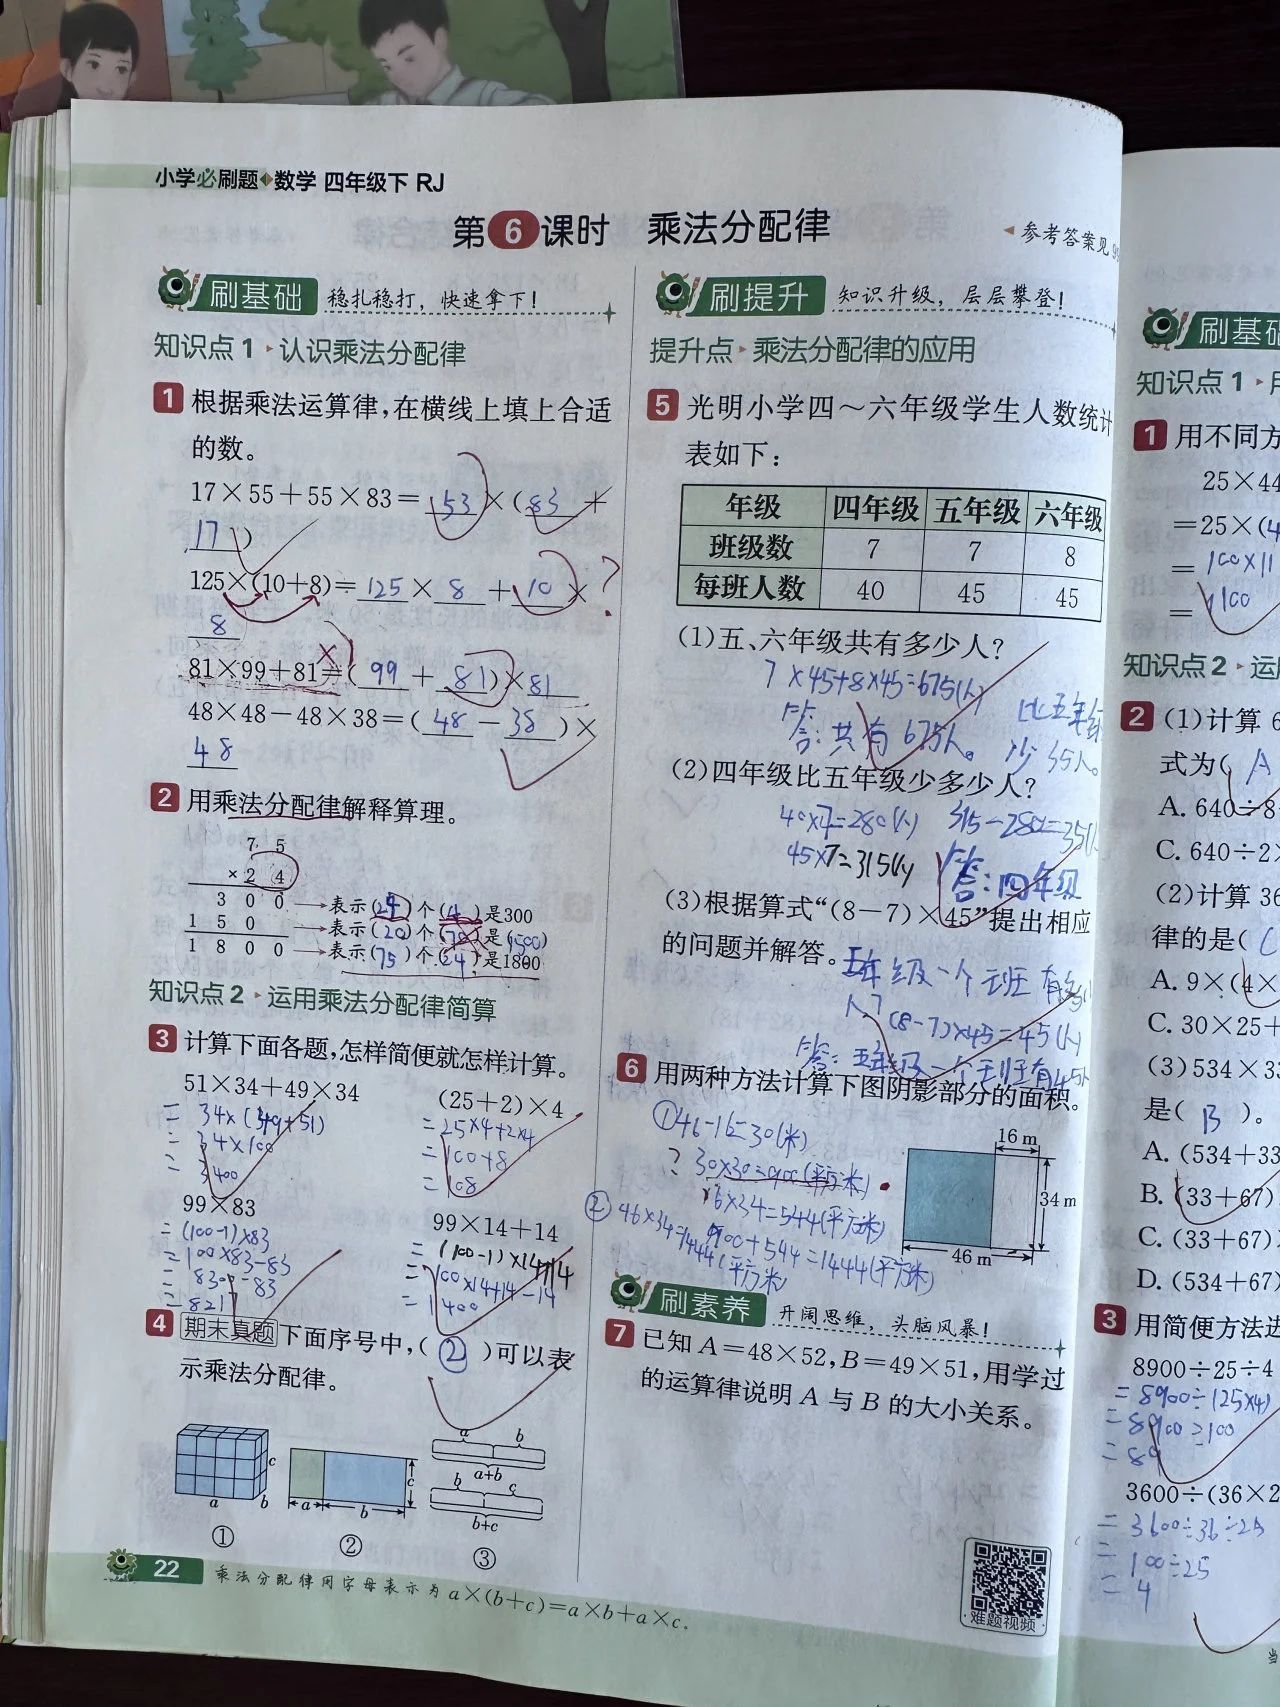 小学必刷题 数学 四年级下 RJ
第6课时 乘法分配律
参考答案见
刷基础 稳扎稳打，快速拿下！
知识点1 认识乘法分配律
1 根据乘法运算律，在横线上填上合适
的数。
17×55+55×83=53×(83+
17)
125×(10+8)=125×8+10×?
8
81×99+81=(99+81)×81
48×48-48×38=(48-38)×
48
2 用乘法分配律解释算理。
75
×24
300 表示( )个(4)是300
150 表示(20)个( )是(1500)
1800 表示(75)个(24)是1800
知识点2 运用乘法分配律简算
3 计算下面各题，怎样简便就怎样计算。
51×34+49×34
=34×(49+51)
=34×100
=3400
(25+2)×4
=25×4+2×4
=100+8
=108
99×83
=(100-1)×83
=100×83-83
=8300-83
=8217
99×14+14
=(100-1)×14+14
=100×14+14-14
=1400
4 期末真题 下面序号中，(②)可以表
示乘法分配律。
a b c
①
a b c
②
a b
a+b
b c
b+c
③
22 乘法分配律用字母表示为a×(b+c)=a×b+a×c.
刷提升 知识升级，层层攀登！
提升点 乘法分配律的应用
5 光明小学四～六年级学生人数统计
表如下：
年级 四年级 五年级 六年级
班级数 7 7 8
每班人数 40 45 45
(1)五、六年级共有多少人？
7×45+8×45=675(人)
答：共有675人。
(2)四年级比五年级少多少人？
40×7=280(人) 315-280=35(人)
45×7=315(人)
答：四年级
比五年级
少35人。
(3)根据算式“(8-7)×45”提出相应
的问题并解答。
五年级一个班有
人？
(8-7)×45=45(人)
答：五年级一个班有45人
6 用两种方法计算下图阴影部分的面积。
①46-16=30(米)
? 30×30=900(平方米)
16×34=544(平方米)
900+544=1444(平方米)
②46×34=1444(平方米)
16 m
34 m
46 m
刷素养 升阔思维，头脑风暴！
7 已知A=48×52,B=49×51,用学过
的运算律说明A与B的大小关系。
难题视频
刷基础
知识点1
1 用不同方
25×44
=25×(4
=100×11
=1100
知识点2
2 (1)计算6
式为(A
A. 640÷8
C. 640÷2×
(2)计算36
律的是(C
A. 9×(4×
C. 30×25+
(3)534×33
是(B)。
A. (534+33
B. (33+67)
C. (33+67)×
D. (534+67)
3 用简便方法
8900÷25÷4
=8900÷(25×4)
=8900÷100
=89
3600÷(36×2
=3600÷36÷25
=100÷25
=4